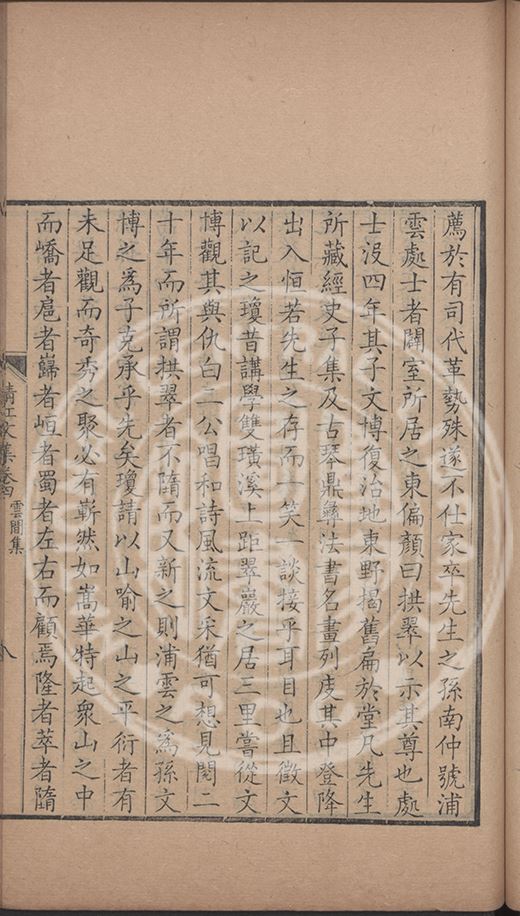 薦於有司代革勢殊遂不仕家卒先生之孫南仲號浦
雲處士者闢室所居之東偏顏曰拱翠以示其尊也處
士沒四年其子文博復治地東野揭舊扁於堂凡先生
所藏經史子集及古琴鼎彝法書名畫列庋其中登降
出入恒若先生之存而一笑一談接乎耳目也且徵文
以記之瓊昔講學雙璜溪上距翠巖之居三里嘗從文
博觀其與仇白二公唱和詩風流文采猶可想見閱二
十年而所謂拱翠者不隋而又新之則浦雲之為孫文
博之為子克承乎先矣瓊請以山喻之山之平衍者有
未足觀而奇秀之聚必有嶄然如嵩華特起衆山之中
而嶠者扈者巋者峘者蜀者左右而顧焉隆者萃者隋
清江文集卷四
雲間集
八